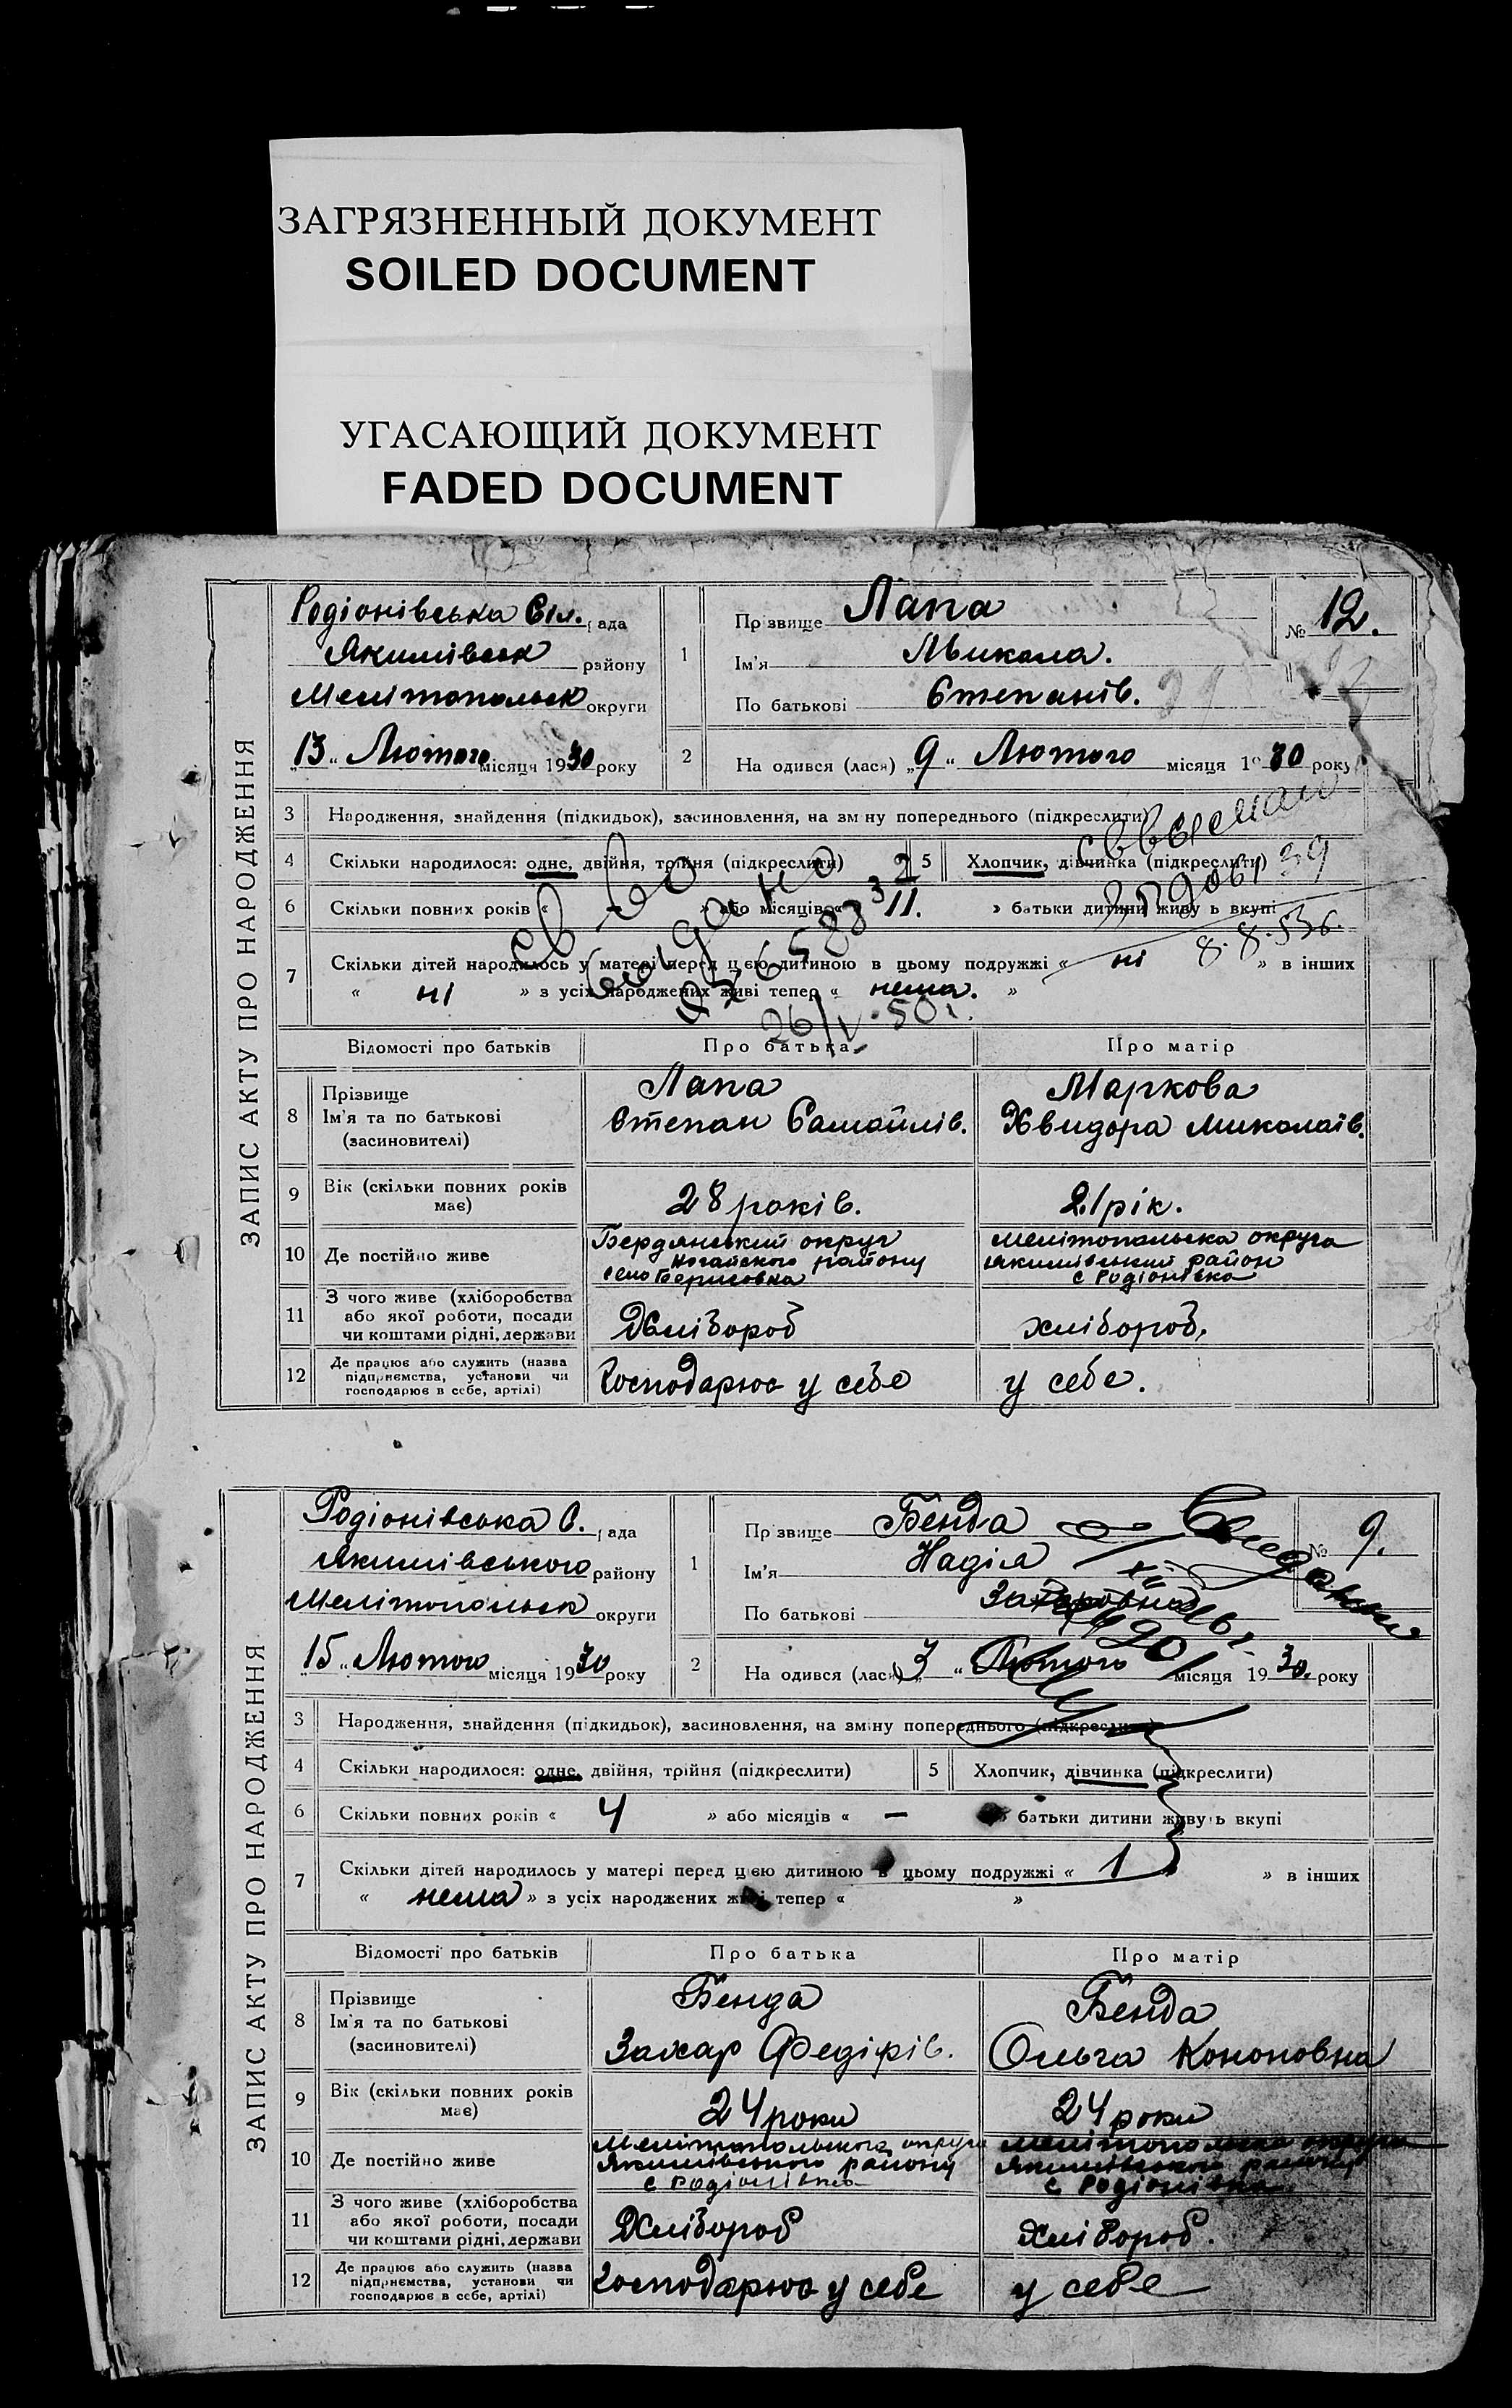 ЗАГРЯЗНЕННЫЙ ДОКУМЕНТ
SOILED DOCUMENT
УГАСАЮЩИЙ ДОКУМЕНТ
FADED DOCUMENT
ЗАПИС АКТУ ПРО НАРОДЖЕННЯ
Родіонівська Сіл. рада
Якимівськ району
Мелітопольськ округи
„13„ Лютого місяця 1930 року
1 Прізвище Лапа
№ 12.
Ім'я Микола.
По батькові Степанів.
2 На одився (лася) „9„ Лютого місяця 1930 року
3 Народження, знайдення (підкидьок), засиновлення, на зміну попереднього (підкреслити)
4 Скільки народилося: одне, двійня, трійня (підкреслити)
5 Хлопчик, дівчинка (підкреслити)
6 Скільки повних років « – » або місяців « 11. » батьки дитини живуть вкупі
7 Скільки дітей народилось у матері перед цією дитиною в цьому подружжі « ні » в інших
« ні » з усіх народжених живі тепер « нема. »
26/V-50г.
8.8.53г.
Відомості про батьків Про батька Про матір
8 Прізвище
Ім'я та по батькові
(засиновителі)
Лапа
Степан Самайлів.
Маркова
Хвидора Миколаїв.
9 Вік (скільки повних років має)
28 років.
21 рік.
10 Де постійно живе
Бердянський округ
Ногайского району
село Борисовка
Мелітопальска округа
Якимівський район
с Родіонівка
11 З чого живе (хліборобства
або якої роботи, посади
чи коштами рідні, держави
Хлібороб
хлібороб.
12 Де працює або служить (назва
підприємства, установи чи
господарює в себе, артілі)
Господарює у себе
у себе.
ЗАПИС АКТУ ПРО НАРОДЖЕННЯ
Родіонівська С. рада
Якимівського району
Мелітопольськ округи
„15„ Лютого місяця 1930 року
1 Прізвище Бенда
№ 9.
Ім'я Надія
По батькові Захаровна
2 На одився (лася) „3„ Лютого місяця 1930. року
3 Народження, знайдення (підкидьок), засиновлення, на зміну попереднього (підкреслити)
4 Скільки народилося: одне, двійня, трійня (підкреслити)
5 Хлопчик, дівчинка (підкреслити)
6 Скільки повних років « 4 » або місяців « – » батьки дитини живуть вкупі
7 Скільки дітей народилось у матері перед цією дитиною в цьому подружжі « 1 » в інших
« нема » з усіх народжених живі тепер « »
Відомості про батьків Про батька Про матір
8 Прізвище
Ім'я та по батькові
(засиновителі)
Бенда
Захар Федірів.
Бенда
Ольга Кононовна
9 Вік (скільки повних років має)
24 роки
24 роки
10 Де постійно живе
Мелітопольского округа
Якимівського району
с Родіонівка
Мелітопольска округа
Якимівського району
с Родіонівка
11 З чого живе (хліборобства
або якої роботи, посади
чи коштами рідні, держави
Хлібороб
Хлібороб.
12 Де працює або служить (назва
підприємства, установи чи
господарює в себе, артілі)
Господарює у себе
у себе